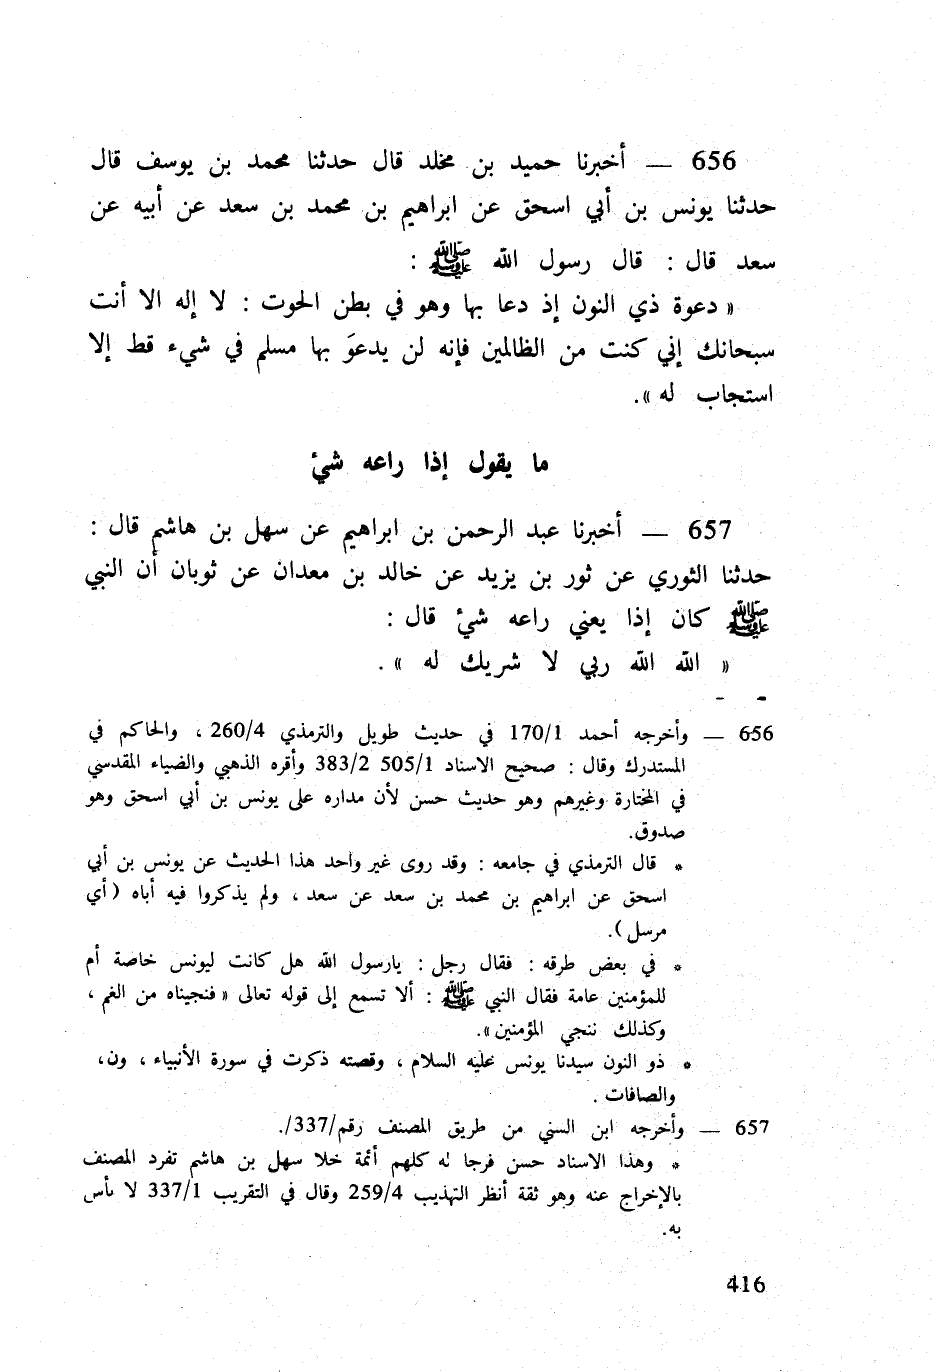 656 — أخبرنا حميد بن مخلد قال حدثنا محمد بن يوسف قال
حدثنا يونس بن أبي اسحق عن ابراهيم بن محمد بن سعد عن أبيه عن
سعد قال : قال رسول الله ﷺ :
« دعوة ذي النون إذ دعا بها وهو في بطن الحوت : لا إله الا أنت
سبحانك إني كنت من الظالمين فإنه لن يدعوَ بها مسلم في شيء قط إلا
استجاب له ».
ما يقول إذا راعه شيْ
657 — أخبرنا عبد الرحمن بن ابراهيم عن سهل بن هاشم قال :
حدثنا الثوري عن ثور بن يزيد عن خالد بن معدان عن ثوبان أن النبي
ﷺ كان إذا يعني راعه شيْ قال :
« الله الله ربي لا شريك له » .
656 — وأخرجه أحمد 170/1 في حديث طويل والترمذي 260/4 ، والحاكم في
المستدرك وقال : صحيح الاسناد 505/1 383/2 وأقره الذهبي والضياء المقدسي
في المختارة وغيرهم وهو حديث حسن لأن مداره على يونس بن أبي اسحق وهو
صدوق.
* قال الترمذي في جامعه : وقد روى غير واحد هذا الحديث عن يونس بن أبي
اسحق عن ابراهيم بن محمد بن سعد عن سعد ، ولم يذكروا فيه أباه ( أي
مرسل ).
* في بعض طرقه : فقال رجل : يارسول الله هل كانت ليونس خاصة أم
للمؤمنين عامة فقال النبي ﷺ : ألا تسمع إلى قوله تعالى « فنجيناه من الغم ،
وكذلك ننجي المؤمنين».
* ذو النون سيدنا يونس عليه السلام ، وقصته ذكرت في سورة الأنبياء ، ون،
والصافات .
657 — وأخرجه ابن السني من طريق المصنف رقم/337/.
* وهذا الاسناد حسن فرجا له كلهم أئمة خلا سهل بن هاشم تفرد المصنف
بالإخراج عنه وهو ثقة أنظر التهذيب 259/4 وقال في التقريب 337/1 لا بأس
به.
416